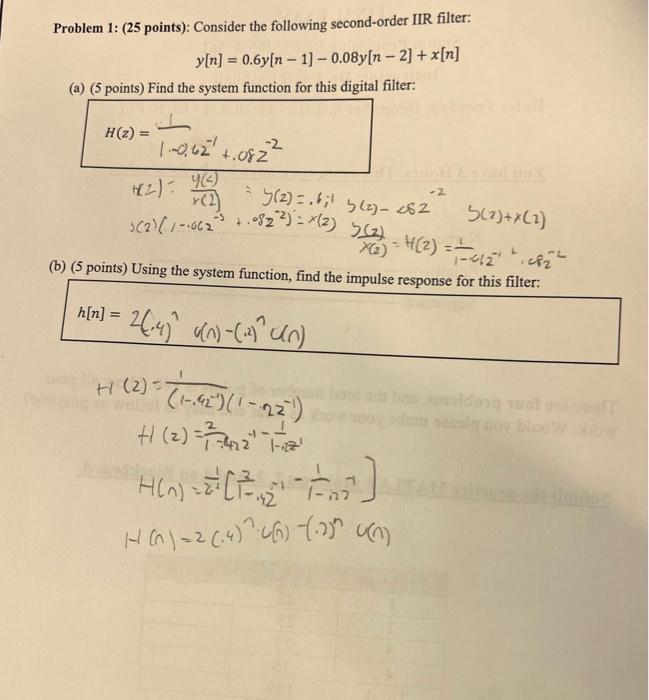 Problem 1: (25 points): Consider the following second-order IIR filter:
y[n] = 0.6y[n − 1] − 0.08y[n − 2] + x[n]
(a) (5 points) Find the system function for this digital filter:
H(z) = 1
1-0.6z^-1 + .08z^-2
H(z) = y(z)/x(z) = y(z) = .6z^-1 y(z) - .08z^-2 y(z) + x(z)
y(z)(1-.6z^-1 + .08z^-2) = x(z) y(z)/x(z) = H(z) = 1/1-.6z^-1 + .08z^-2
(b) (5 points) Using the system function, find the impulse response for this filter:
h[n] = 2(.4)^n u(n) - (.2)^n u(n)
H(z) = 1/(1-.4z^-1)(1-.2z^-1)
H(z) = 2/1-.4z^-1 - 1/1-.2z^-1
H(n) = z^-1 [2/1-.4z^-1 - 1/1-.2z^-1]
H(n) = 2(.4)^n u(n) - (.2)^n u(n)